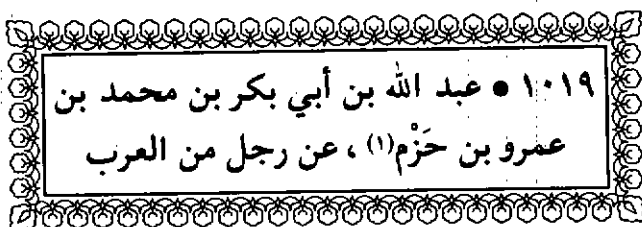 ١٠١٩ ● عبد الله بن أبي بكر بن محمد بن
عمرو بن حَزْم(١) ، عن رجل من العرب